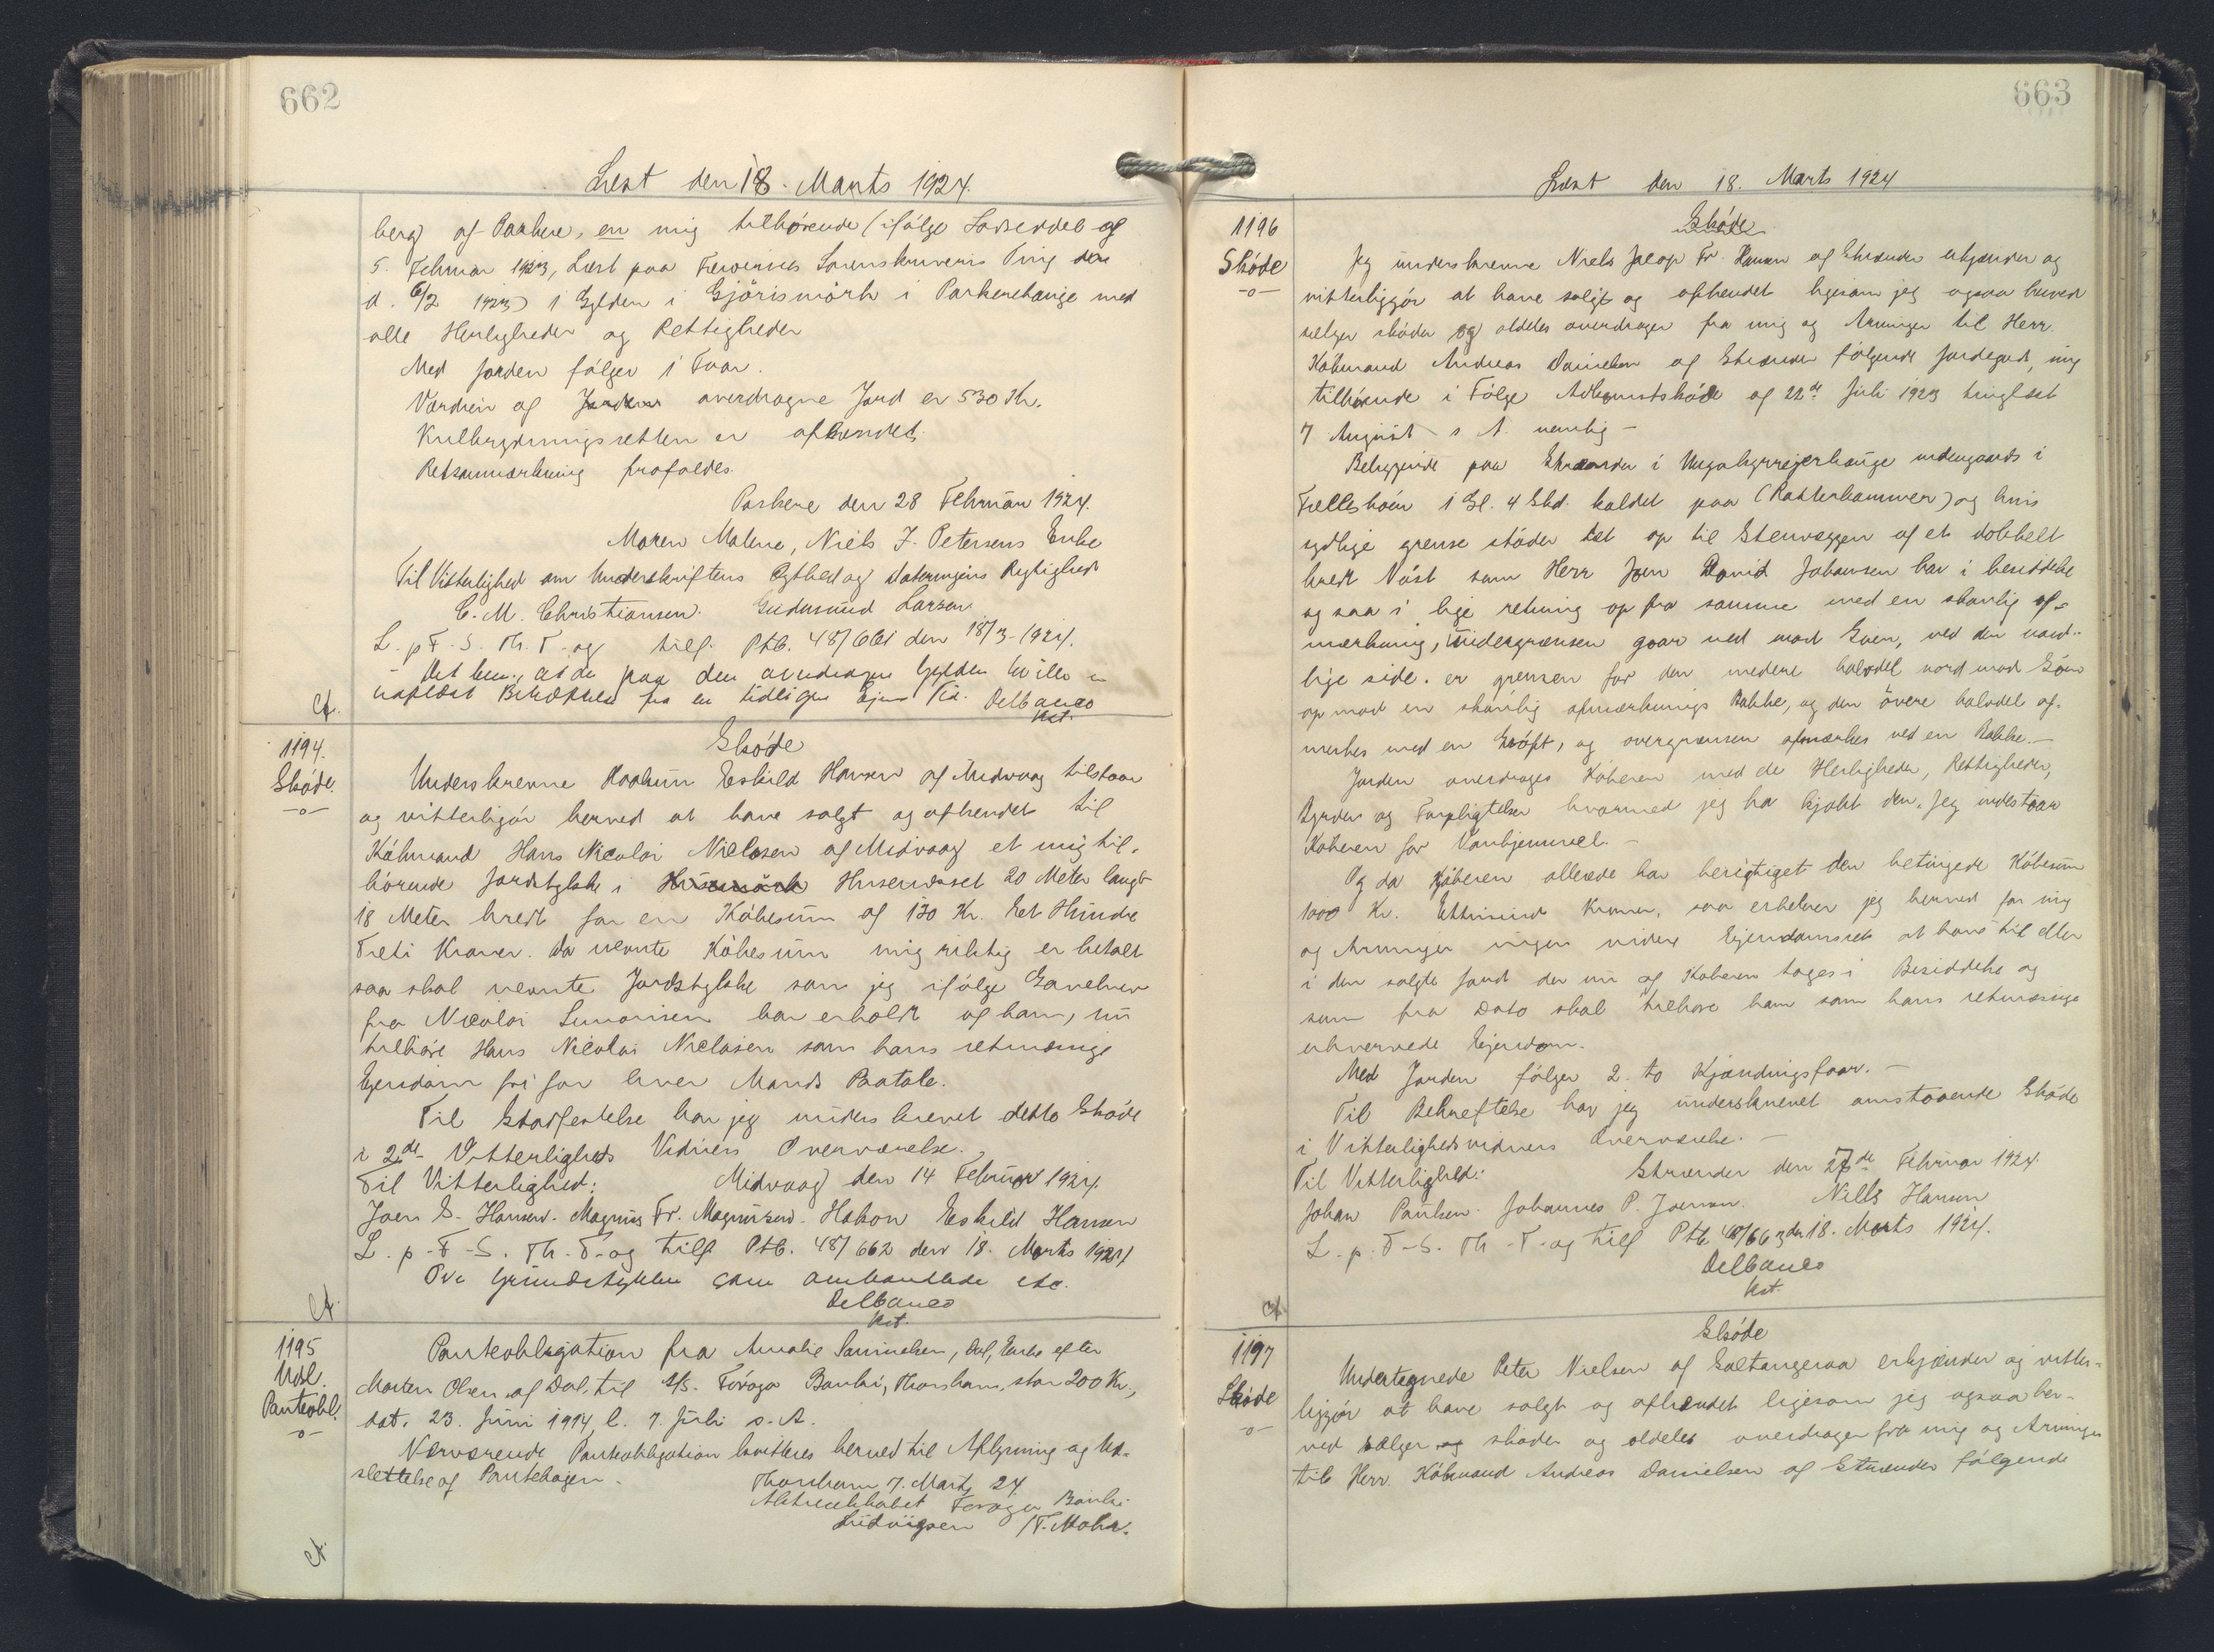 662
Læst den 18. Marts 1924.
berg af Porkere, en mig tilhörende (ifölge Lodseddel af
5. Februar 1923, Læst paa Færöernes Sorenskriveris Ting den
d. 6/2 1923) 1 Gylden i Gjörismörk i Porkerehauge med
alle Herligheder og Rettigheder
Med Jorden fölger 1 Faar.
Værdien af Jorden overdragne Jord er 530 Kr.
Kulbrydningsretten er afhændet.
Retsanmærkning frafaldes.
Porkere den 28 Februar 1924.
Maren Malene, Niels J. Petersens Enke
Til Vitterlighed om Underskriftens Ægthed og Dateringens Rigtighed
C. M. Christiansen. Gudmund Larsen
L. p F. S. Th. T. og tilf. Ptb. 48/661 den 18/3-1924.
paa den
uaflæst fra en tidligere Ejers Tid. Delbanco
Kst.
1194.
Sköde.
-o-
Sköde
Underskrevne Haakun Eskild Hansen af Midvaag tilstaar
og vitterligör herved at have solgt og afhendet til
Köbmand Hans Nicolai Niclasen af Midvaag et mig til-
hörende Jordstykke i Husamörk Husenæsset 20 Meter langt
18 Meter bredt for en Köbesum af 130 Kr. Eet Hundre
Treti Kroner. Da nevnte Köbesum mig riktig er betalt
saa skal nevnte Jordstykke som jeg ifölge Gavebrev
fra Nicolai Simonsen har erholdt af ham, nu
tilhöre Hans Nicolai Niclasen som hans retmæsige
Ejendom fri for hver Mands Paatale.
Til Stadfestelse har jeg underskrevet dette Sköde
i 2de Vitterligheds Vidners Overværelse.
Til Vitterlighed: Midvaag den 14 Februar 1924.
Joen S. Hansen. Magnus Fr. Magnusen. Hakon Eskild Hansen
L. p. F-S. Th. T. og tilf Ptb. 48/662 den 18. Marts 1924
Grundstykket som
Delbanco
Kst.
1195
Udsl.
Panteobl.
-o-
Panteobligation fra Amalie Samuelsen, Dal, Enke efter
Morten Olsen af Dal, til A/S. Föroya Banki, Thorshavn, stor 200 Kr.,
dat. 23. Juni 1914, l. 7. Juli s. A.
Nærværende Panteobligation kvitteres herved til Aflysning og Ud-
slettelse af Pantebogen.
Thorshavn, 7. Marts 24.
Aktieselskabet Föroya Banki
Ludvigsen /T. Mohr.
663
Læst den 18. Marts 1924
1196
Sköde
-o-
Sköde
Jeg underskrevne Niels Jacop Fr. Hansen af Strænder erkjænder og
vitterliggör at have solgt og afhendet ligesom jeg ogsaa herved
sælger sköder og aldeles overdrager fra mig og Arvinger til Herr.
Köbmand Andreas Danielsen af Strænder fölgende Jordegods, mig
tilhörende i Fölge Adkomstsköde af 22de Juli 1923 tinglæst
7 August s A. nemlig -
Beliggende paa Strænder i indengaards i
1 Gl. 4 Skd. kaldet paa (Rætterhammer) og hvis
sydlige grense stöder tet op til Stenveggen af et dobbelt
bredt Nöst som Herr Joen David Johansen har i besiddelse
og saa i lige retning op fra samme med en skarlig af-
mærkning, nidergrænsen gaar ned mod Söen, ved den nord-
lige side. er grensen for den nedere halvdel nord mod Söen
op mod en skarlig afmærknings Bakke, og den övere halvdel af-
merkes med en Gröft, og overgrænsen afmærkes ved en Bakke.-
Jorden overdrages Köberen med de Herligheder, Rettigheder,
Byrder og Forpligtelser hvormed jeg har kjöbt den. Jeg indestaar
Köberen for Vanhjemmel. -
Og da Kjöberen allerede har berigtiget den betingede Köbesum
1000 Kr. Ettusind Kroner, saa erklærer jeg herved for mig
og Arvinger ingen videre Ejendomsret at have til eller
i den solgte Jord der nu af Köberen tages i Besiddelse og
som fra Dato skal tilhöre ham som hans retmæsige
erhvervede Ejendom.
Med Jorden fölger 2. to Kjændingsfaar. -
Til Bekreftelse har jeg underskrevet omstaaende Sköde
i Vitterlighedsvidners Overværelse. -
Til Vitterlighed: Strænder den 27de Februar 1924.
Johan Paulsen. Johannes P. Joensen. Niels Hansen
L. p. F-S. Th-T-og tilf Ptb 48/663 den 18. Marts 1924.
Delbanco
Kst.
1197
Sköde
-o-
Sköde
Undertegnede Peter Nielsen af Saltangeraa erkjænder og vitter-
liggör at have solgt og afhændet ligesom jeg ogsaa her-
ved sælger og sköder og aldeles overdrager fra mig og Arvinger
til Herr. Köbmand Andreas Danielsen af Strænder fölgende